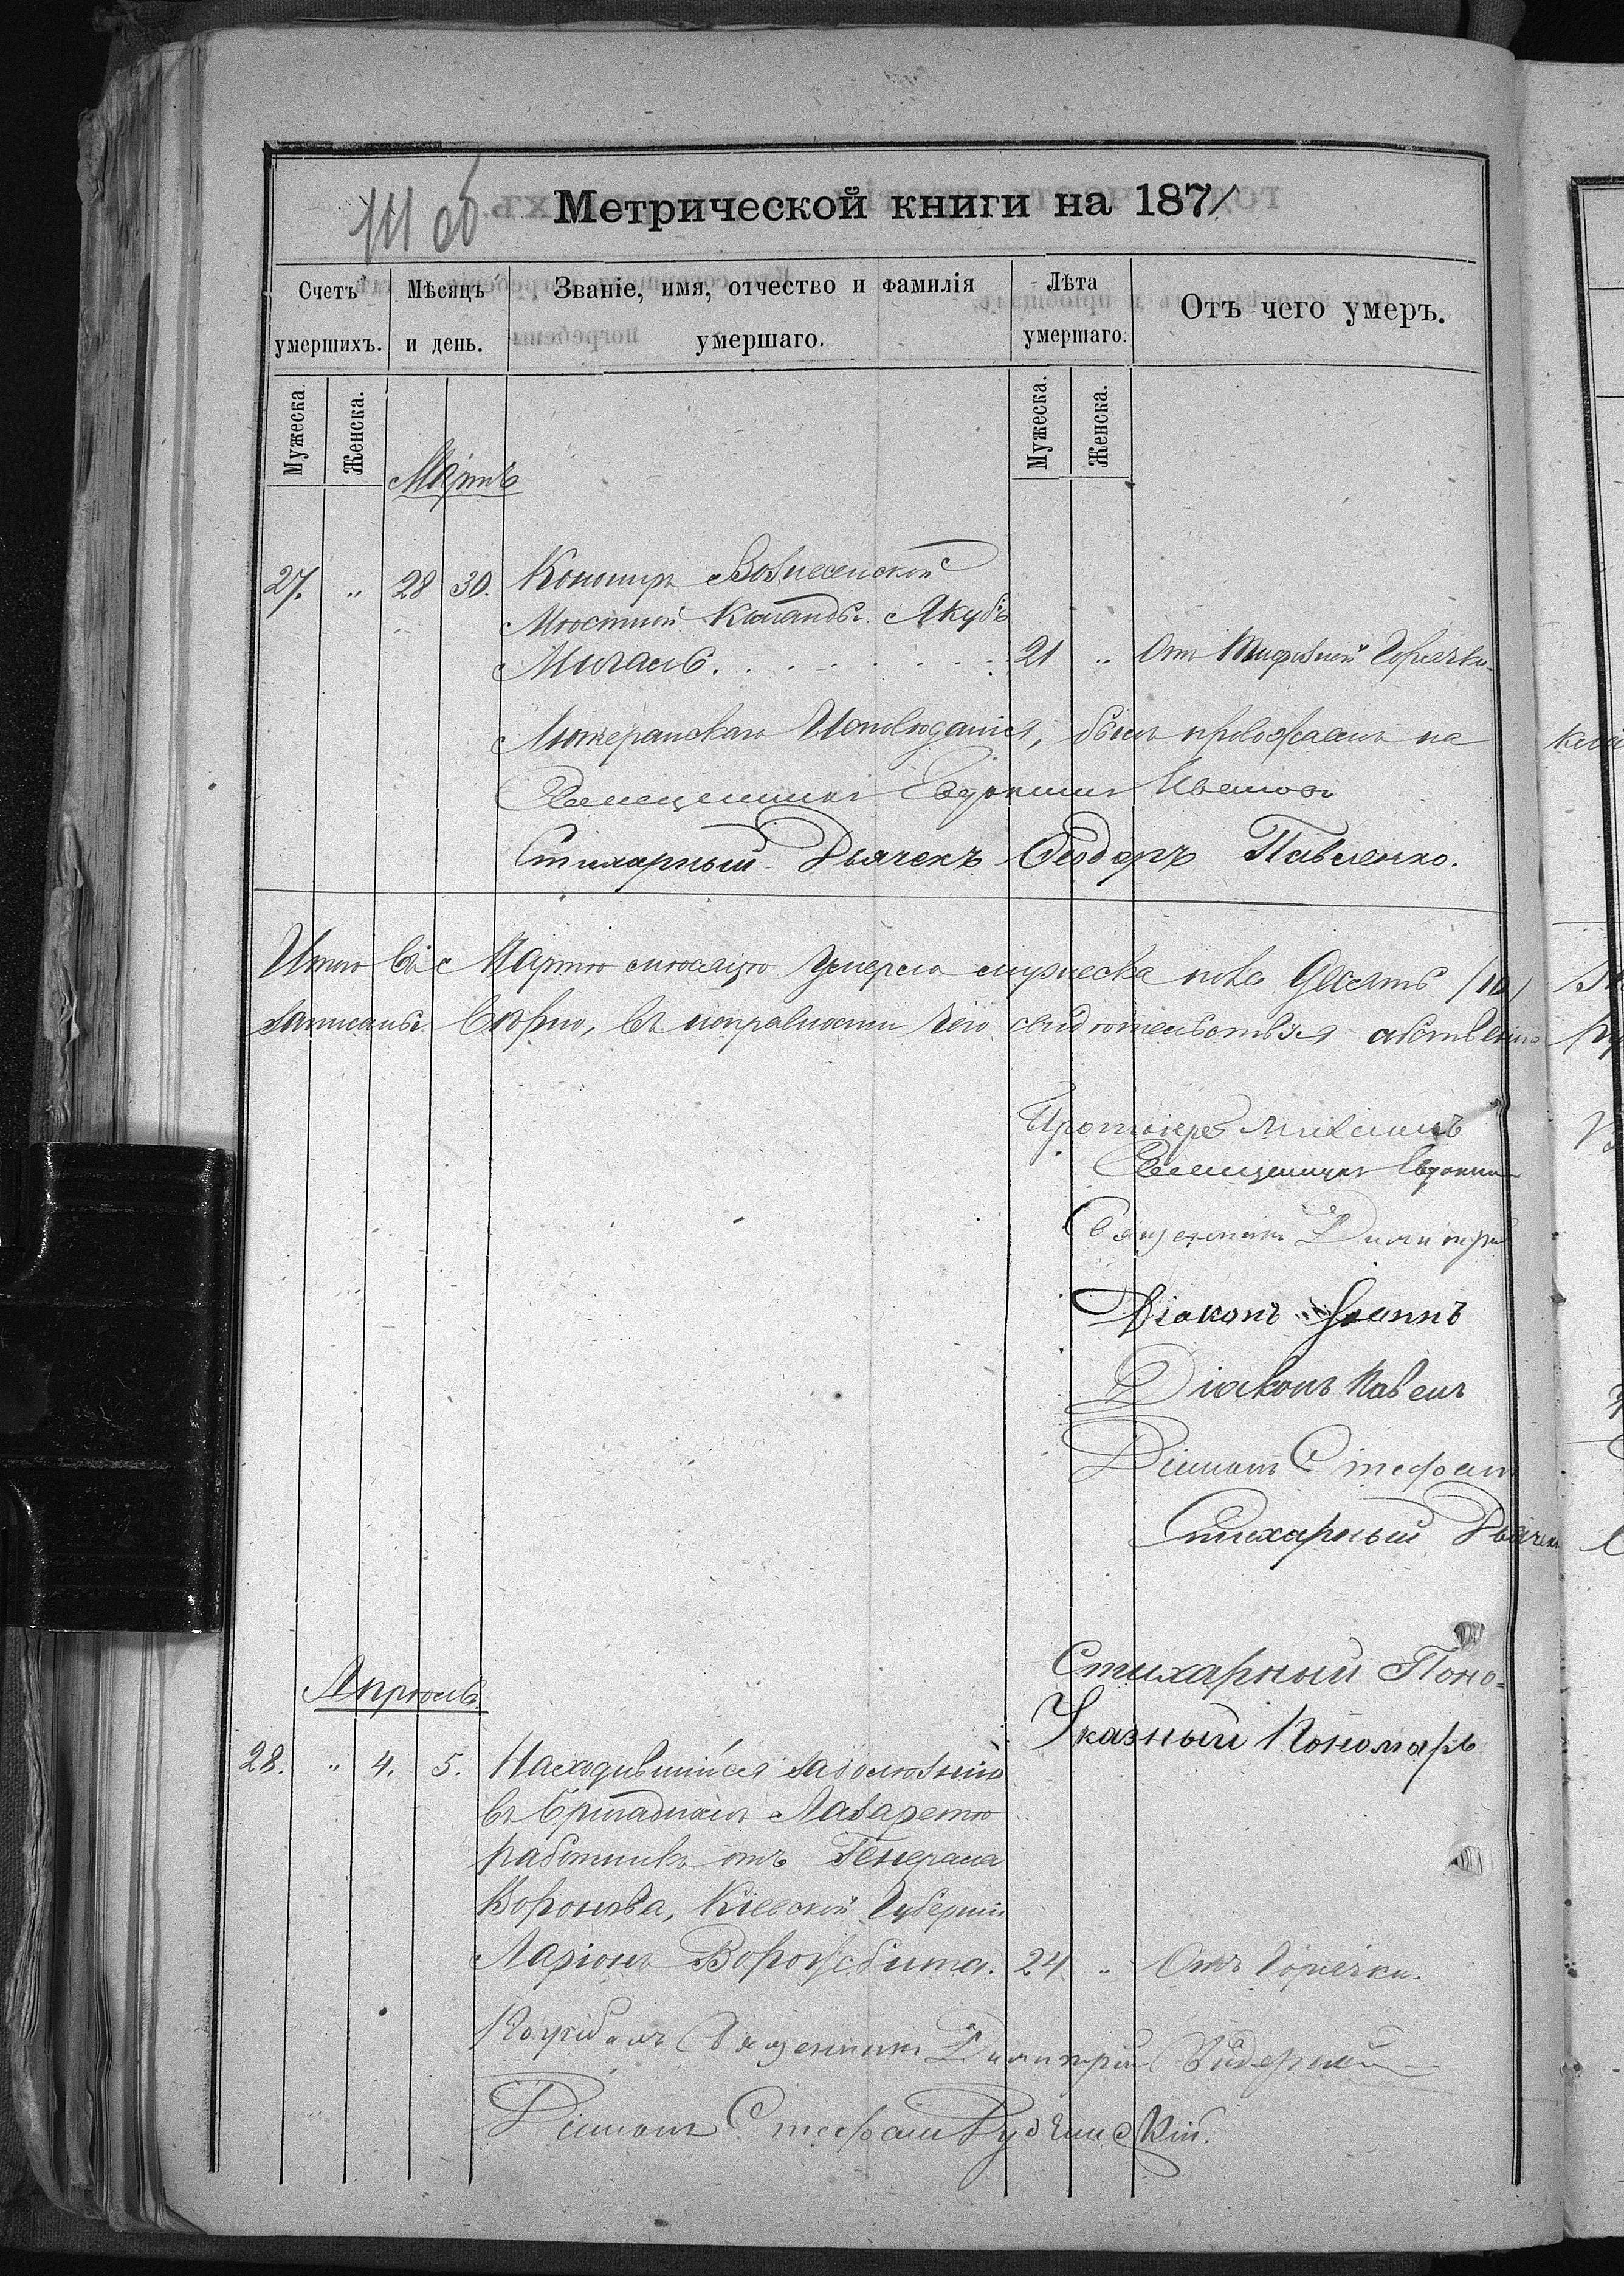 111 об
Метрической книги на 1871
Счетъ умершихъ.
Мѣсяцъ и день.
Званіе, имя, отчество и фамилія умершаго.
Лѣта умершаго.
Отъ чего умеръ.
Мужеска.
Женска.
Мужеска.
Женска.
Мартъ
27. " 28 30. Кононир Вознесенской
Мѣстной Команды Якубъ
21 " От Тифозной Горячки
Лютеранскаго Исповѣданія, былъ провожаемъ на
Священникъ Евдокимъ
Стихарный Дьячекъ Ѳеодоръ Павленко.
Итого въ Мартѣ мѣсяцѣ умерло мужеска пола десять /10/
записаны вѣрно, въ исправности чего свидѣтельствуя
Протоіерей
Священникъ Евдоким
Священникъ Димитрій
Діаконъ Іоаннъ
Діаконъ Павелъ
Діаконъ Стефанъ
Стихарный Дьячекъ
Стихарный Поно-
Указный Пономарь
Апрѣль
28. " 4. 5. Находившійся на
въ Бригадномъ Лазаретѣ
работникъ отъ Генерала
Воронова, Кіевской Губерніи
Ларіонъ Ворожбита. 24 " Отъ Горячки.
Погребалъ Священникъ Димитрій
Діаконъ Стефанъ Рудчинскій.